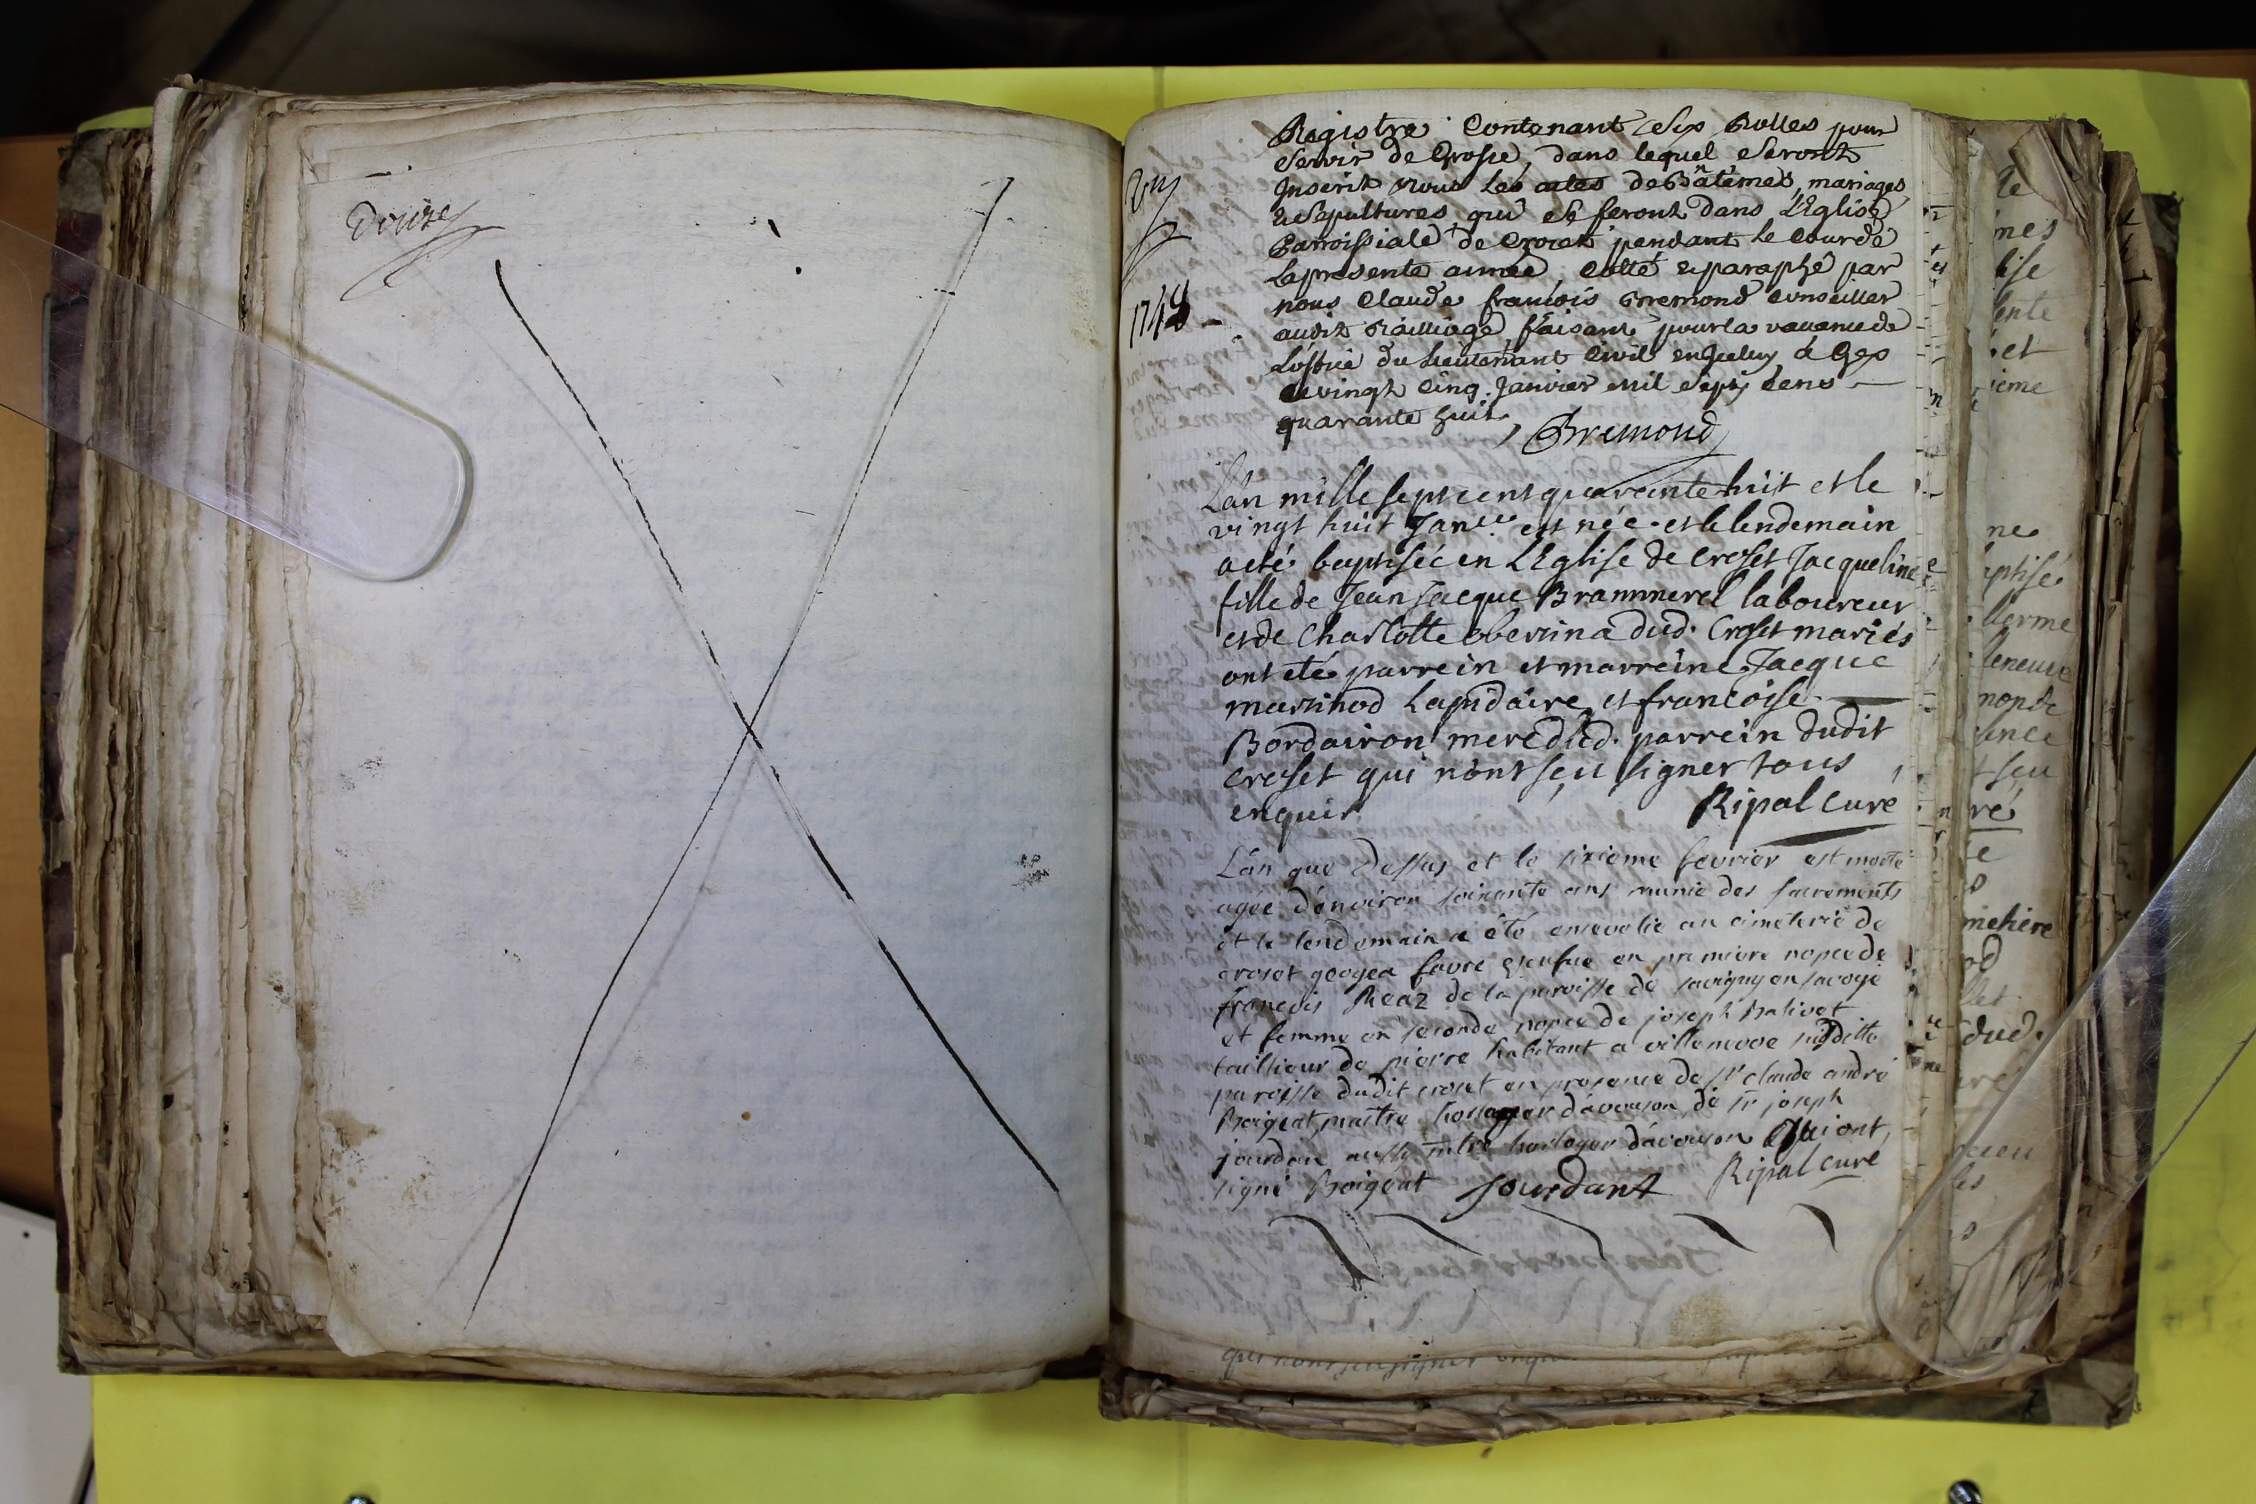 Douze
Un
1748
Registre Contenant Six Rolles pour
Servir de Grosse, dans lequel Seront
Inserit tous les actes de Bâtemes, mariages
et Sepultures qui se feront dans L'Eglise
Parroissiale de Crozet pendant le Cour de
La presente année, Cotté et paraphé par
nous Claude françois Bremond Conseiller
audit Bailliage faisant pour la vacance de
L'office du Lieutenant Civil à Gex
Ce vingt Cinq Janvier mil Sept Cens
quarante huit, Bremond
L'an mille sept cent quarante huit et le
vingt huit Janer. est née et le lendemain
a eté baptisée en L'Eglise de Croset Jacqueline
fille de Jean Jacque Brammerel laboureur
et de Charlotte obertin a dud. Croset mariés
ont eté parrein et marreine Jacque
martinod Lapidaire et francoise
Bordairon mere dud. parrein dudit
Croset qui n'ont sçu signer tous
enquis Ripal Curé
L'an que Dessus et le sixieme fevrier est morte
agée d'environ soixante ans munie des sacrements
et le lendemain a été ensevelie au cimeterie de
croset favre en premiere nopce de
françois Reaz de la paroisse de savigny en savoye
et femme en seconde nopce de joseph Balivet
taillieur de pierre habitant a villeneuve susditte
paroisse dudit croset en presence de sr claude andré
Boigeat, maitre horloger d'avouson de sr joseph
jourdan aussy mtre horloger d'avouson Qui ont
signé Boigeat Jourdant Ripal Curé